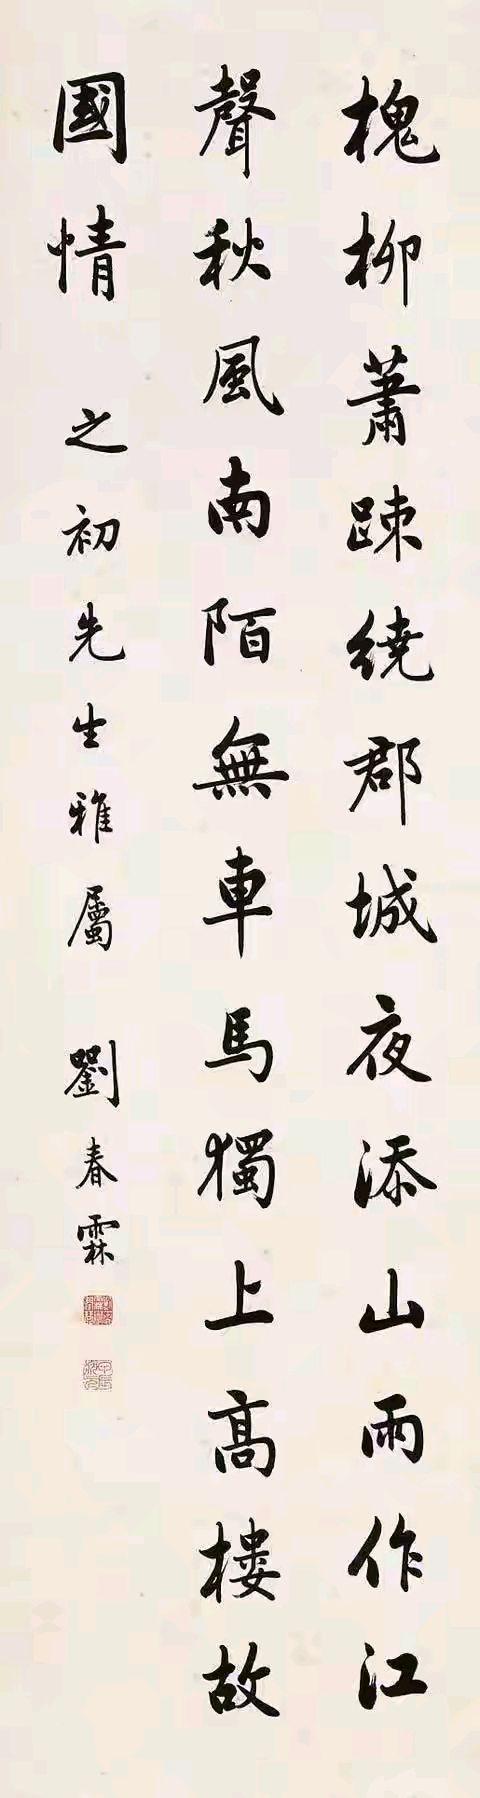 槐柳蕭踈繞郡城夜添山雨作江
聲秋風南陌無車馬獨上高樓故
國情 之初先生雅屬 劉春霖